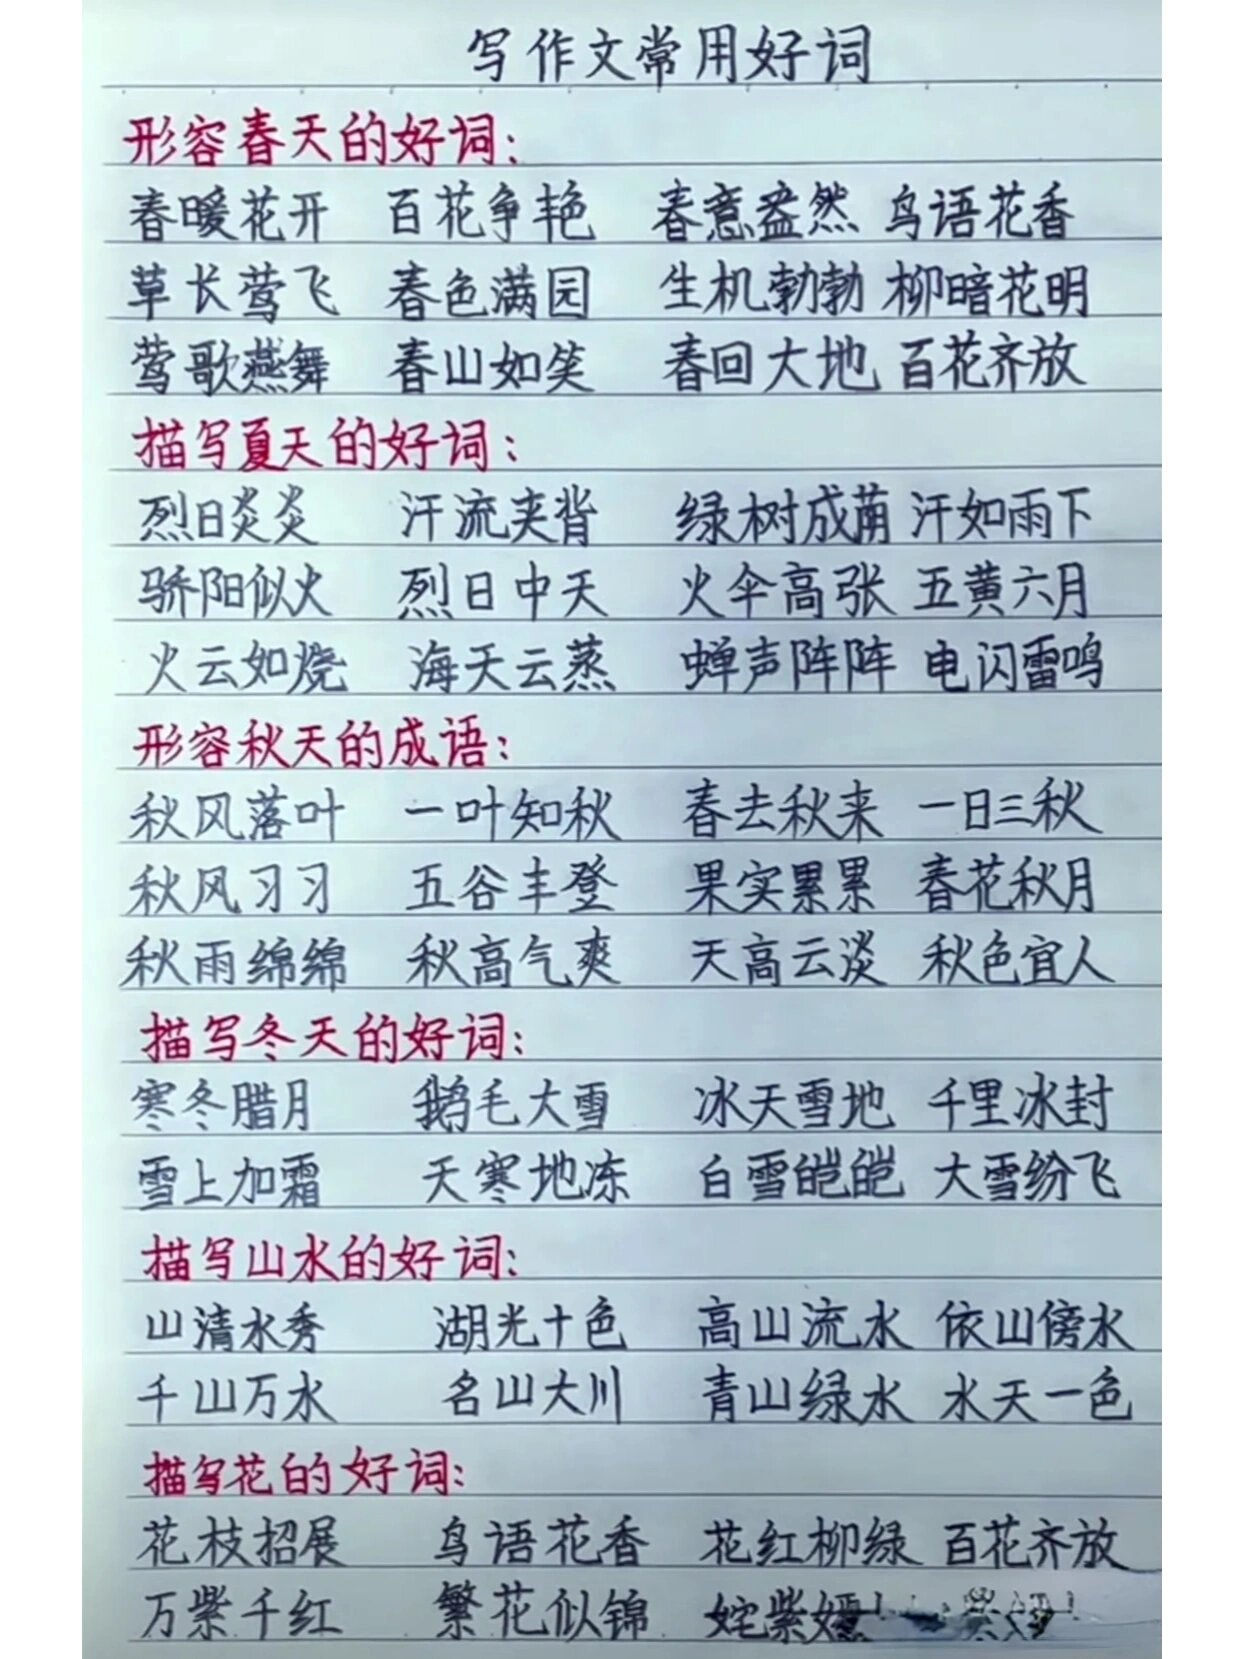 写作文常用好词
形容春天的好词:
春暖花开 百花争艳 春意盎然 鸟语花香
草长莺飞 春色满园 生机勃勃 柳暗花明
莺歌燕舞 春山如笑 春回大地 百花齐放
描写夏天的好词:
烈日炎炎 汗流夹背 绿树成荫 汗如雨下
骄阳似火 烈日中天 火伞高张 五黄六月
火云如烧 海天云蒸 蝉声阵阵 电闪雷鸣
形容秋天的成语:
秋风落叶 一叶知秋 春去秋来 一日三秋
秋风习习 五谷丰登 果实累累 春花秋月
秋雨绵绵 秋高气爽 天高云淡 秋色宜人
描写冬天的好词:
寒冬腊月 鹅毛大雪 冰天雪地 千里冰封
雪上加霜 天寒地冻 白雪皑皑 大雪纷飞
描写山水的好词:
山清水秀 湖光十色 高山流水 依山傍水
千山万水 名山大川 青山绿水 水天一色
描写花的好词:
花枝招展 鸟语花香 花红柳绿 百花齐放
万紫千红 繁花似锦 姹紫嫣